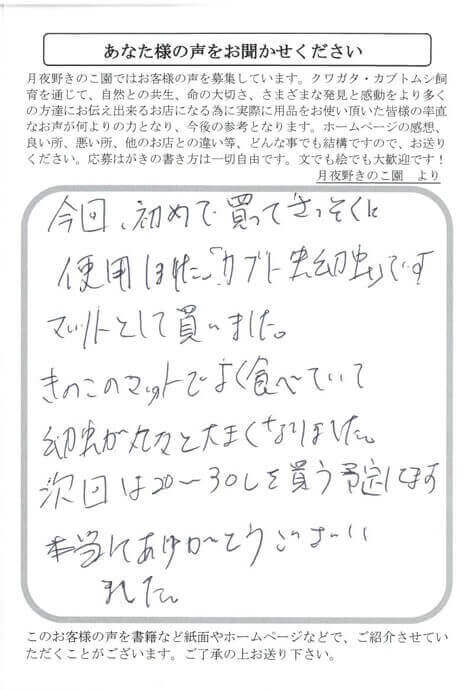 あなた様の声をお聞かせください
月夜野きのこ園ではお客様の声を募集しています。クワガタ・カブトムシ飼
育を通じて、自然との共生、命の大切さ、さまざまな発見と感動をより多く
の方達にお伝え出来るお店になる為に実際に用品をお使い頂いた皆様の率直
なお声が何よりの力となり、今後の参考となります。ホームページの感想、
良い所、悪い所、他のお店との違い等、どんな事でも結構ですので、お送り
ください。応募はがきの書き方は一切自由です。文でも絵でも大歓迎です！
月夜野きのこ園 より
今回、初めて買ってさっそくに
使用しました。「カブト虫幼虫」です
マットとして買いました。
きのこのマットでよく食べていて
幼虫が丸々と大きくなりました。
次回は20〜30Lを買う予定してます
本当にありがとうございい
ました。
このお客様の声を書籍など紙面やホームページなどで、ご紹介させてい
ただくことがございます。ご了承の上お送り下さい。